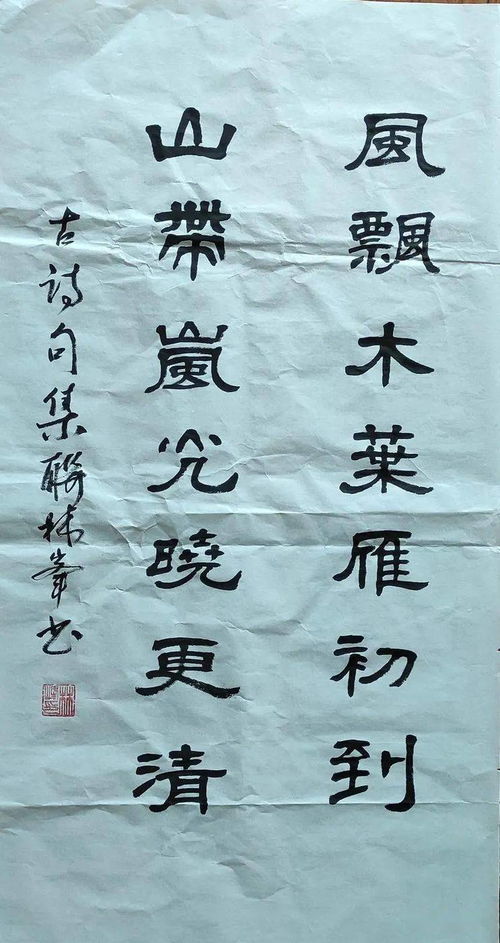 風飄木葉雁初到
山帶嵐光曉更清
古詩句集聯林峯书